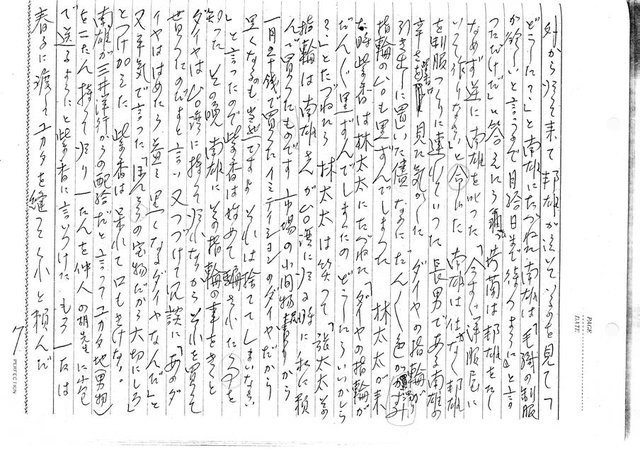 外から帰って来て邦雄が泣いてゐるのを見て「
どうした?」と南雄にたづね南雄は「毛織の制服
が欲しいと言うので月給日まで待つようにと言
っただけだ」と答えたら 英南は邦雄をたし
なめず逆に南雄を叱って「今すぐ洋服屋に
いって作りなさい」と命じた 南雄は仕方なく邦雄
を制服つくりに連れていった 長男である南雄の
辛さを 見た気がした ダイヤの指輪が
引き出しに置いた儘なのにだんだん色が
指輪の台も黒ずんでしまった 林太太が来
た時紫香は林太太にたづね「ダイヤの指輪が
だんだん黒ずんでしまったのどうしたらいいかしら
?」とたづねたら 林太太は笑って「張太太その
指輪は南雄さんが台湾に帰る時に私に頼
んで買ったものです 市場の小間物 から
一円五十銭で買ったイミテイションのダイヤだから
黒くなるのも当然ですよ それは捨ててしまいなさい
」と言ったので紫香は始めて騙されたことを
知った その晩南雄にその指輪の事をきくと
ダイヤは台湾に持って帰れないから それを買って
せるったのだよと言い 又つづけて冗談に「あのダ
イヤははめたら益々黒くなるダイヤなんだ」と
又平気で言った「ほんとうの宝物だから大切にしろ」
とつけ加えた 紫香は呆れて口もきけない
南雄が三井洋行からの配給だと言ってユカタ地(男物)
を二たん持って帰り 一たんを仲人の胡先生に
で送るようにと紫香に言いつけた もう一たんは
春子に渡してユカタを縫ってくれと頼んだ
7
PAGE
DATE
PERFECTION